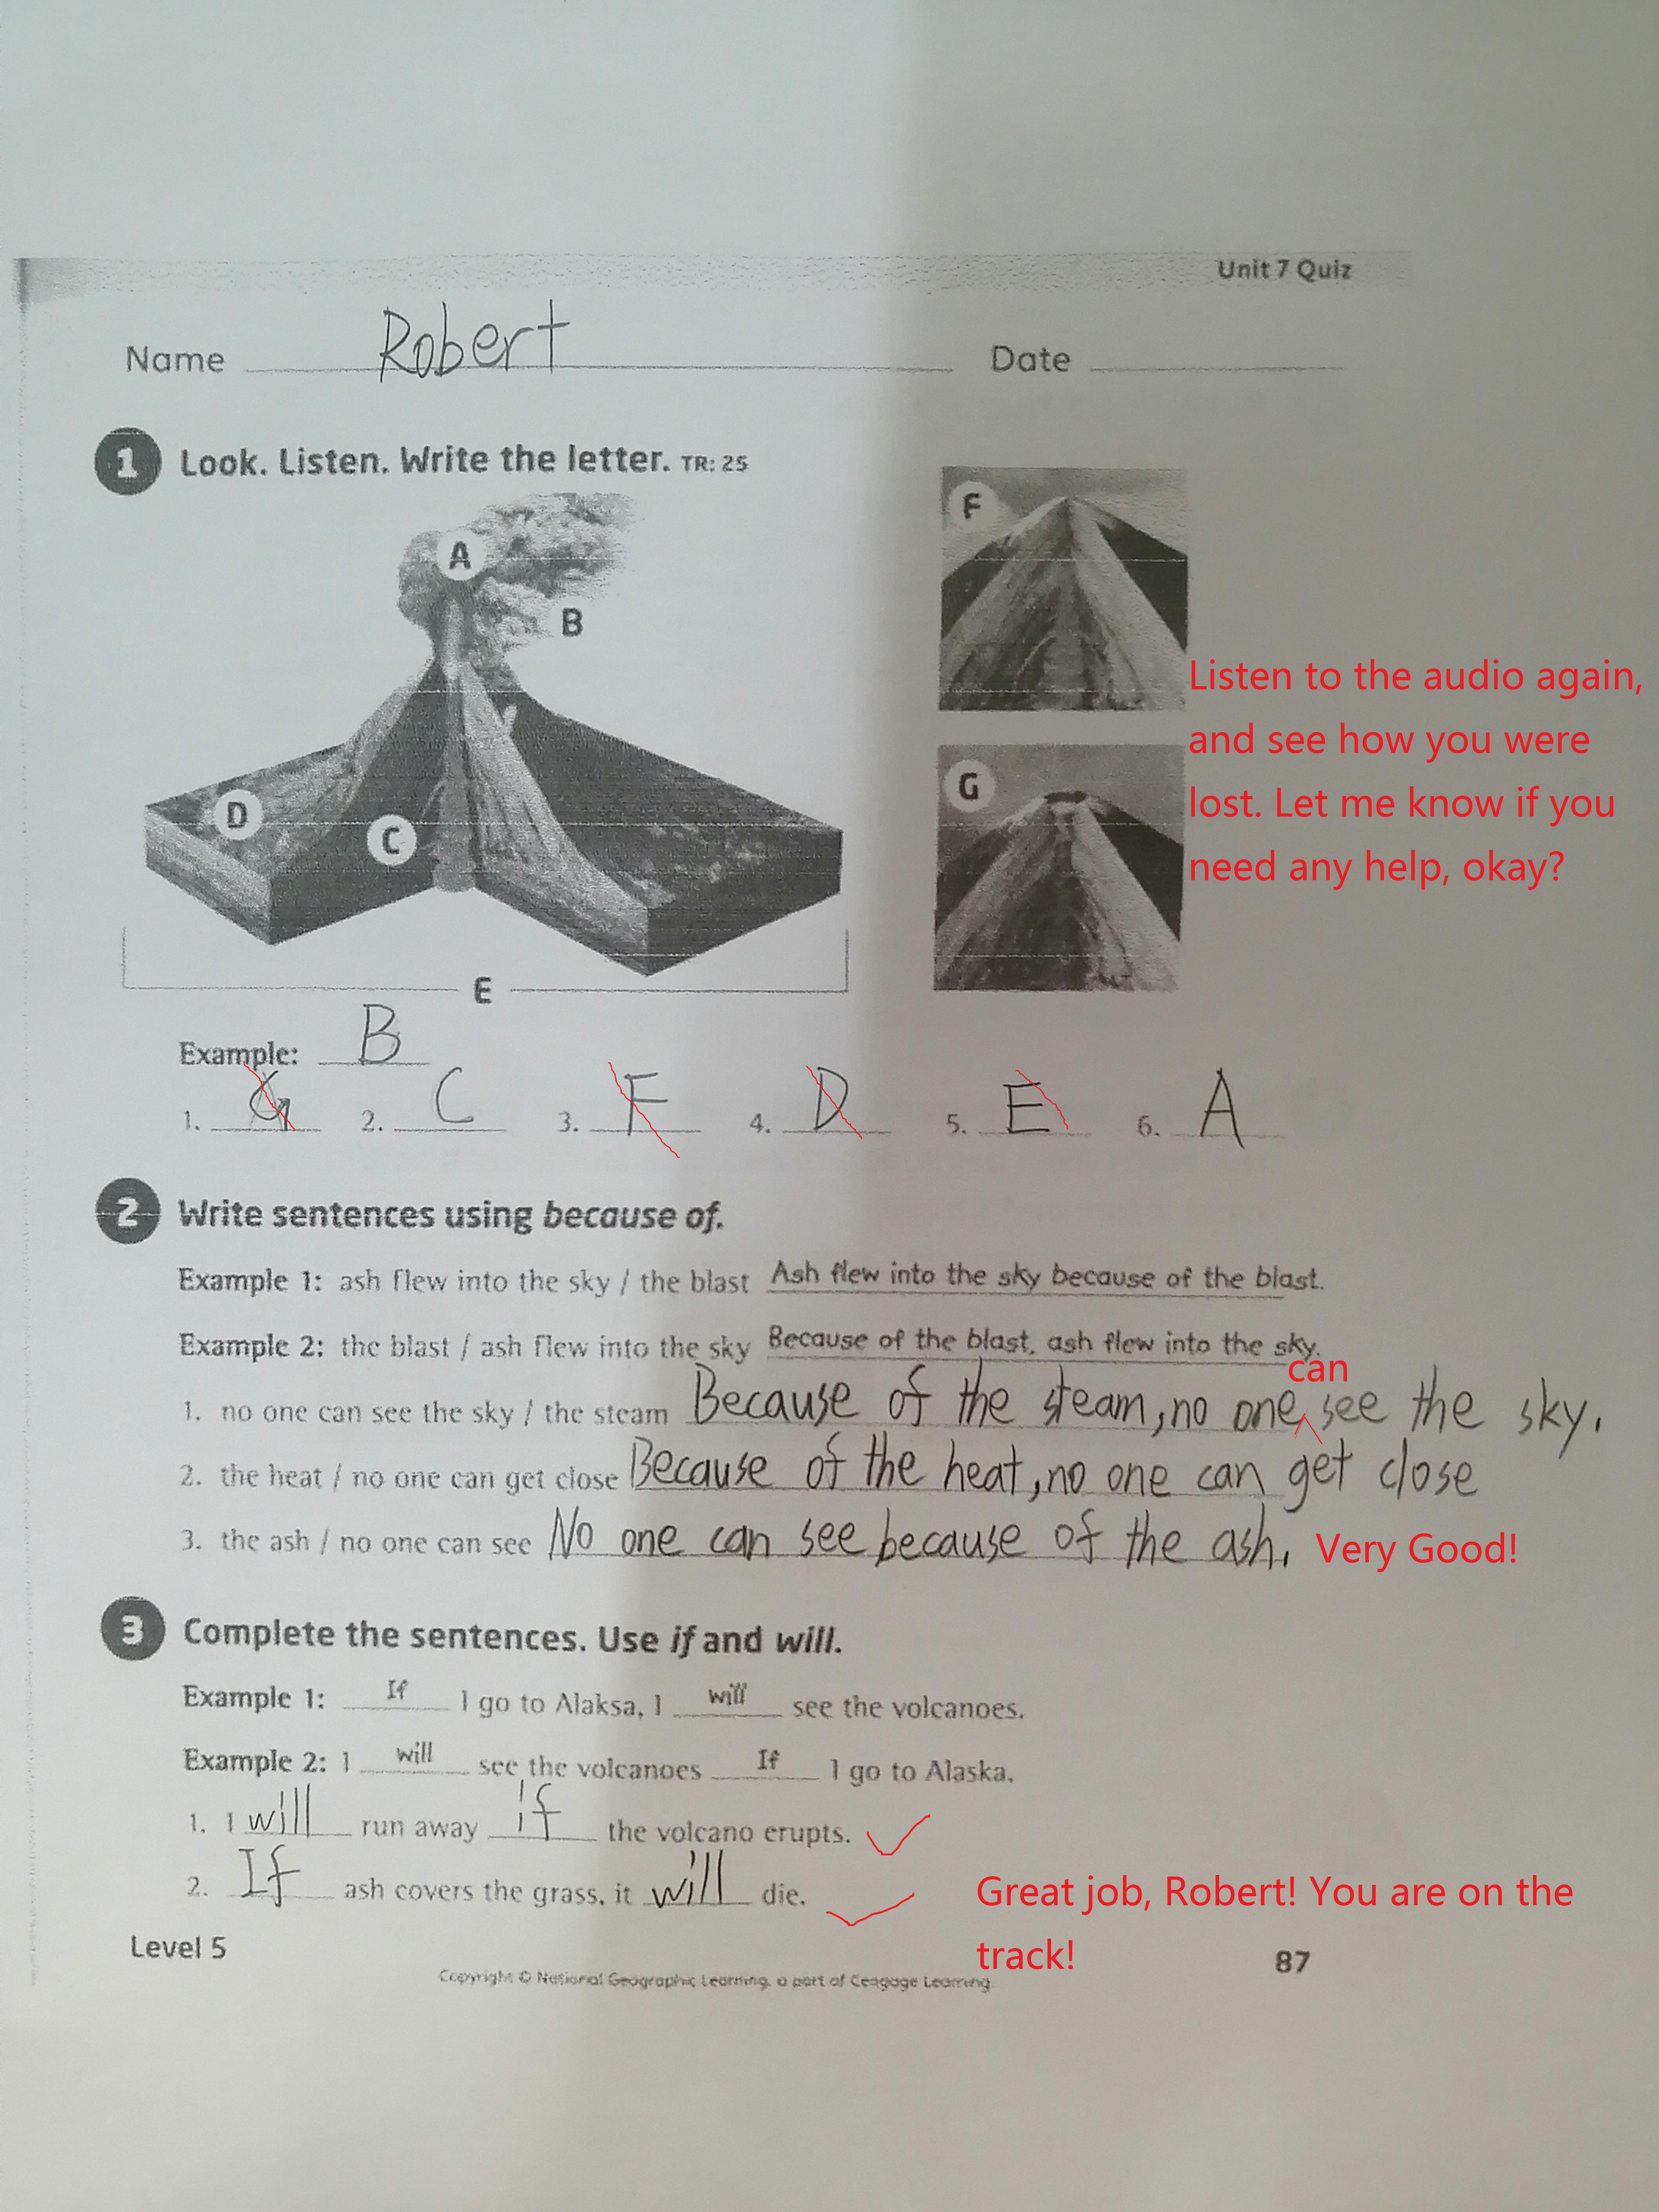 Unit 7 Quiz
Name Robert Date
1 Look. Listen. Write the letter. TR: 25
A
B
C
D
E
F
G
Listen to the audio again,
and see how you were
lost. Let me know if you
need any help, okay?
Example: B
1. G 2. C 3. F 4. D 5. E 6. A
2 Write sentences using because of.
Example 1: ash flew into the sky / the blast Ash flew into the sky because of the blast.
Example 2: the blast / ash flew into the sky Because of the blast, ash flew into the sky.
can
1. no one can see the sky / the steam Because of the steam, no one see the sky.
2. the heat / no one can get close Because of the heat, no one can get close
3. the ash / no one can see No one can see because of the ash. Very Good!
3 Complete the sentences. Use if and will.
Example 1: If I go to Alaksa, I will see the volcanoes.
Example 2: I will see the volcanoes If I go to Alaska.
1. I will run away if the volcano erupts.
2. If ash covers the grass, it will die.
Great job, Robert! You are on the
track!
Level 5
87
Copyright © National Geographic Learning, a part of Ceagage Learning